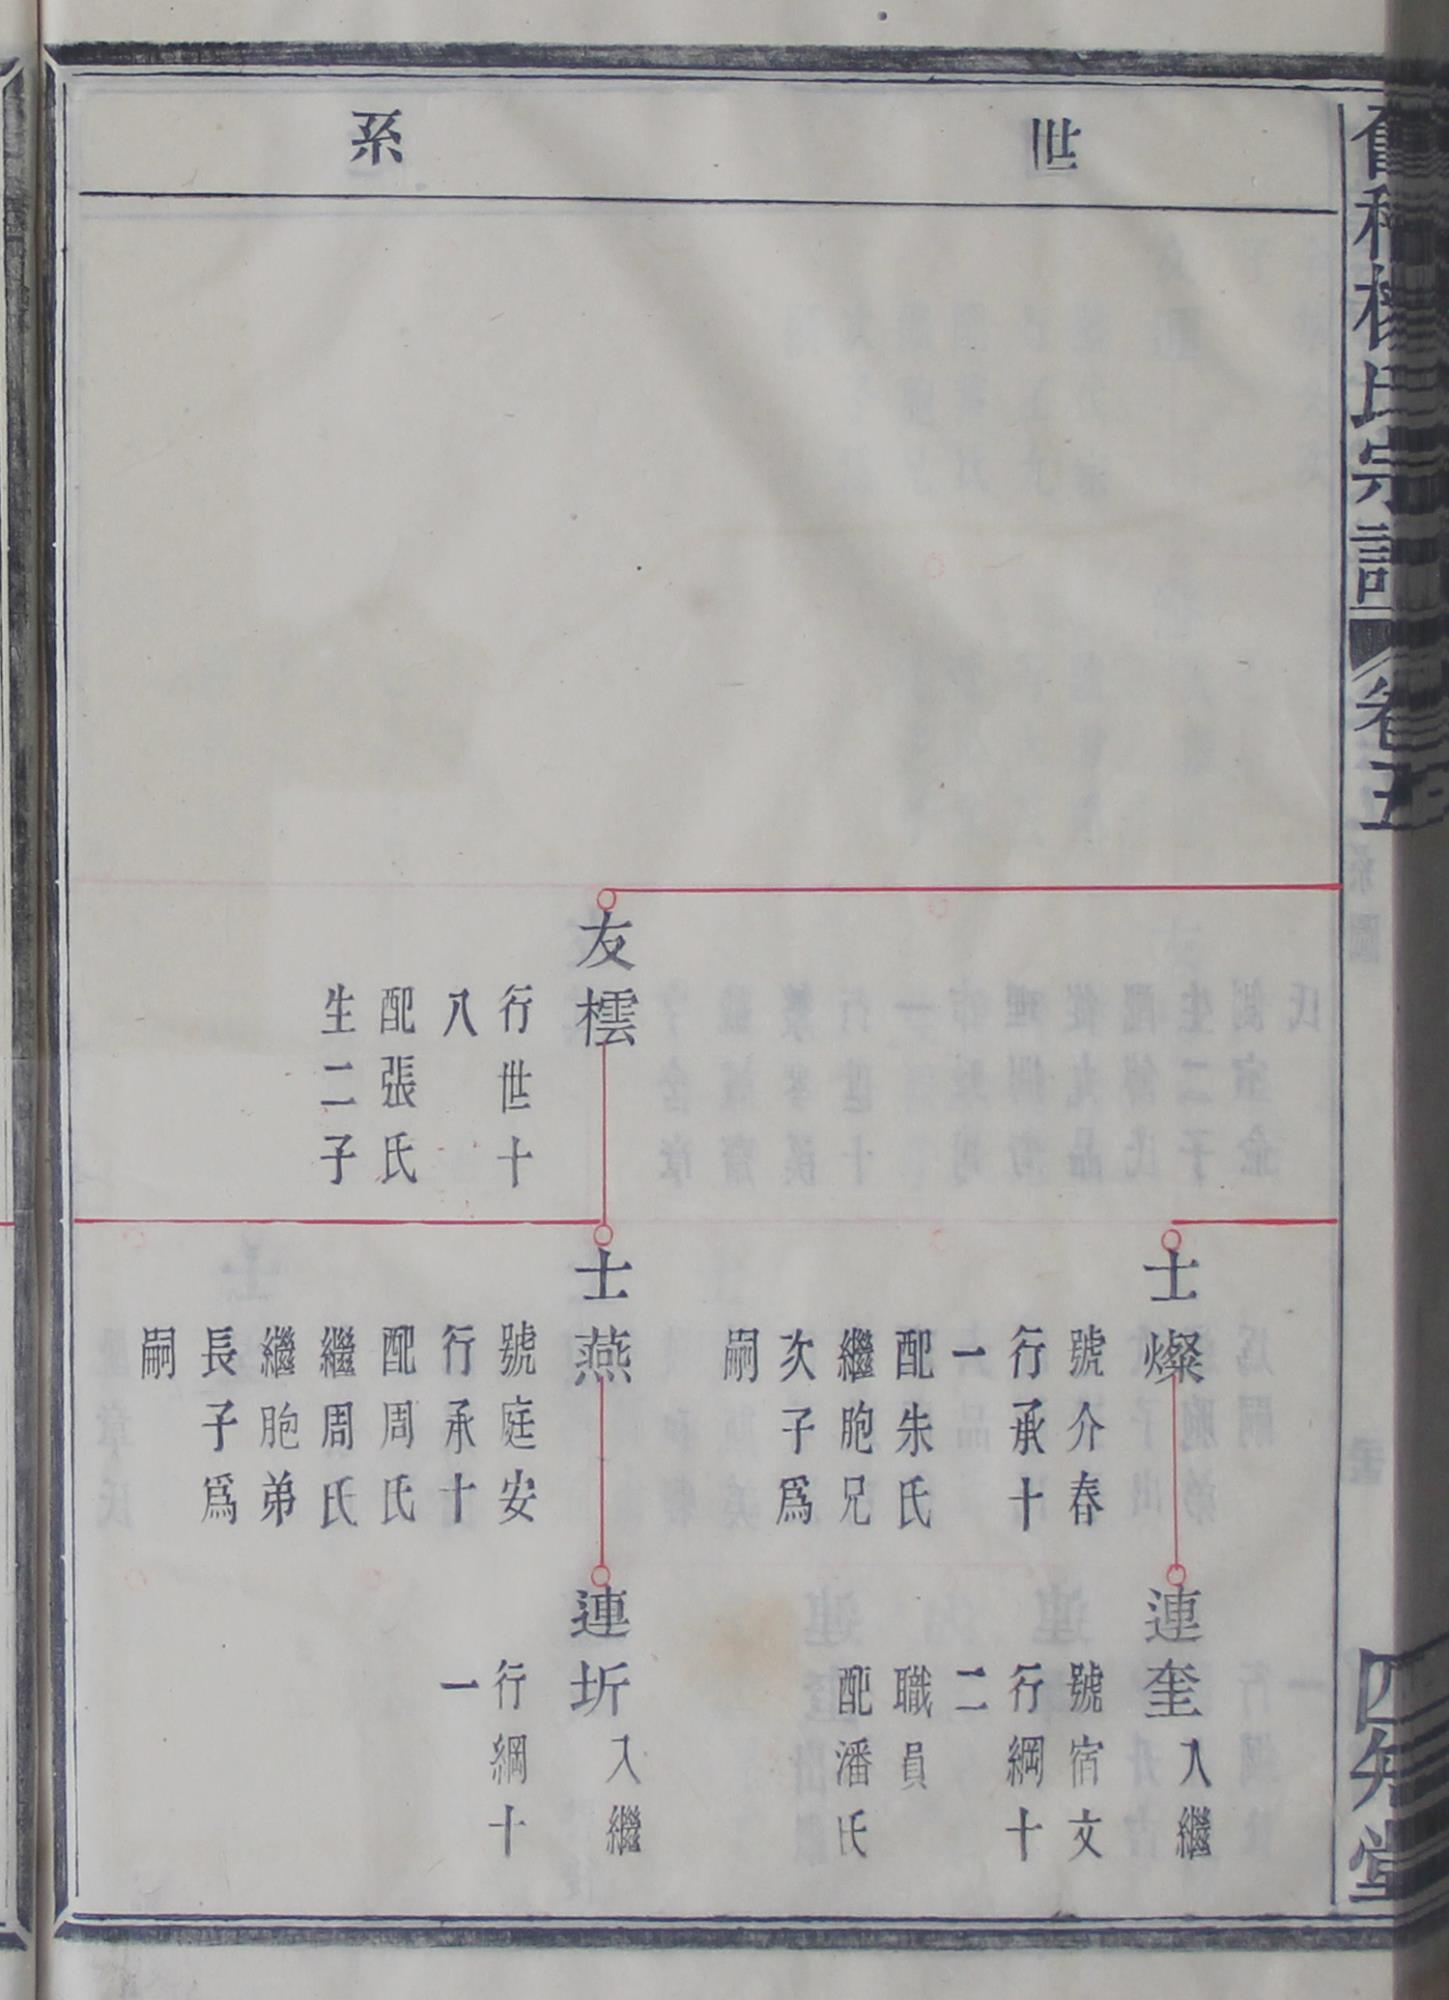 世
系
氏宗譜
卷五
四知堂
士燦
號介春
行承十
一
配朱氏
繼胞兄
次子爲
嗣
連奎入繼
號宿文
行綱十
二
職員
配潘氏
友橒
行世十
八
配張氏
生二子
士燕
號庭安
行承十
配周氏
繼周氏
繼胞弟
長子爲
嗣
連圻入繼
行綱十
一